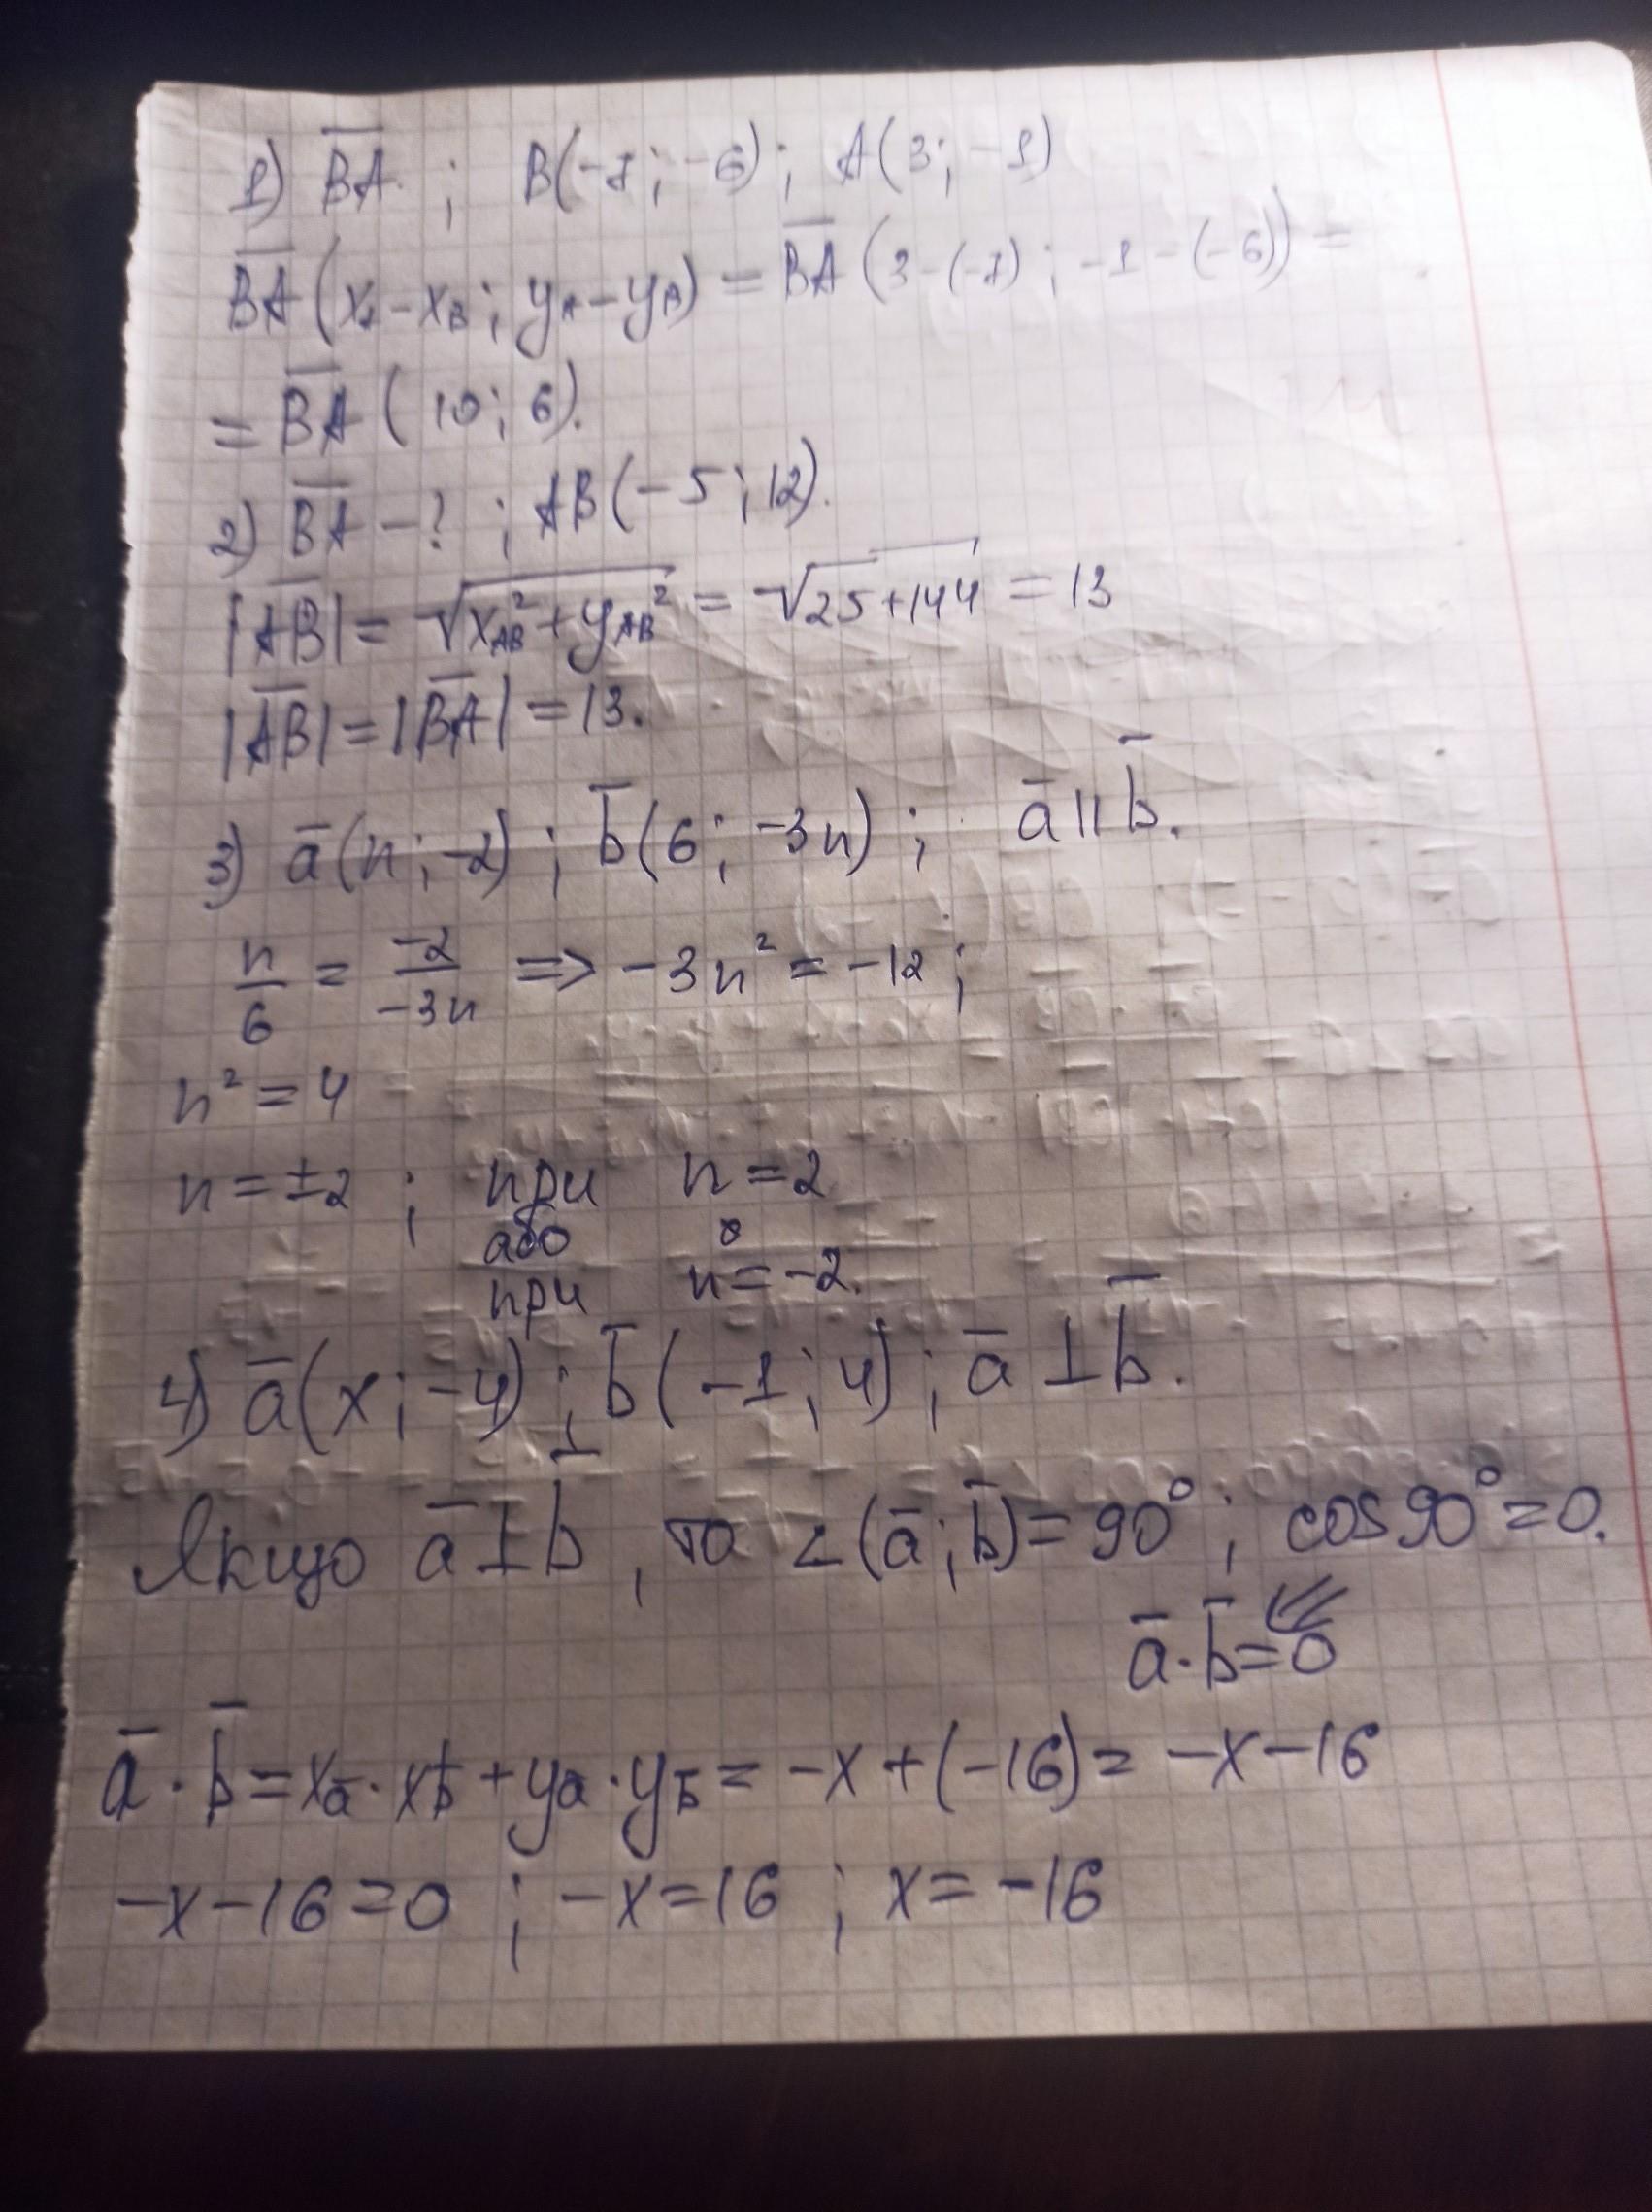 1) BA ; B(-7; -6); A(3; -1)
BA (xₐ - x_B ; y_A - y_B) = BA (3-(-7) ; -1-(-6)) =
= BA (10; 6).
2) BA - ? ; AB(-5; 12).
|AB| = √(x_AB² + y_AB²) = √(25+144) = 13
|AB| = |BA| = 13.
3) a(n; -2) ; b(6; -3n) ; a || b.
n/6 = -2/-3n => -3n² = -12 ;
n² = 4
n = ±2 ; при n = 2
або
при n = -2.
4) a(x; -4) ; b(-1; 4) ; a ⊥ b.
Якщо a ⊥ b, то ∠(a; b) = 90° ; cos 90° = 0.
a · b = 0
a · b = xₐ · x_b + yₐ · y_b = -x + (-16) = -x - 16
-x - 16 = 0 ; -x = 16 ; x = -16